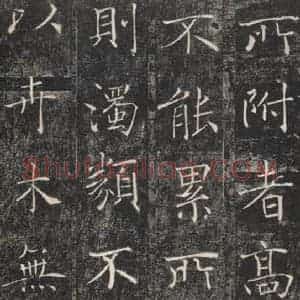 所附者高
不能累所
則濁類不
以卉木無